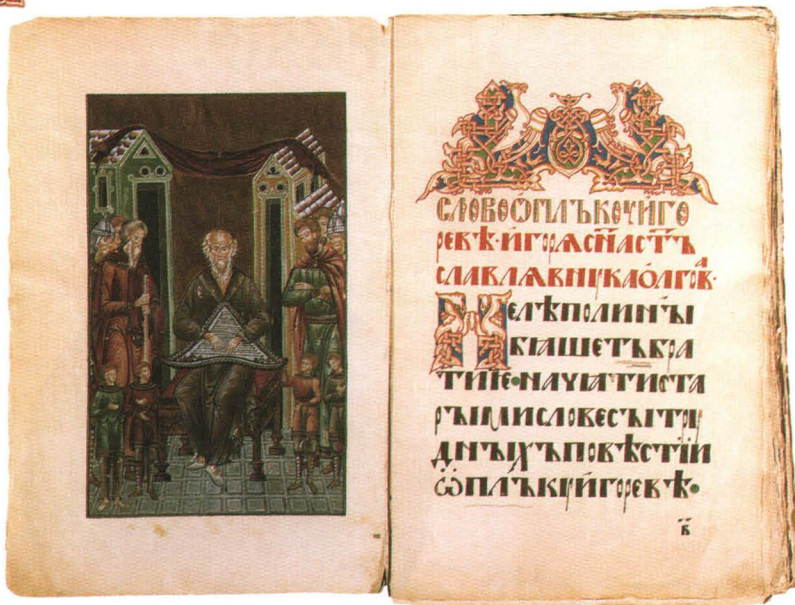 СЛОВОѾПЛЪКОУИГО
РЕВѢ·ИГОРѦСН҃АСТЪ
СЛАВЛѦВНУКАОЛГОВА·
НЕЛѢПОЛИНЫ
БѦШЕТЪБРА
ТИІЕ·НАЧѦТИСТА
РЫМИСЛОВЕСЫТРУ
ДНЫХЪПОВѢСТІИ
ѾПЛЪКУИГОРЕВѢ·
в҃